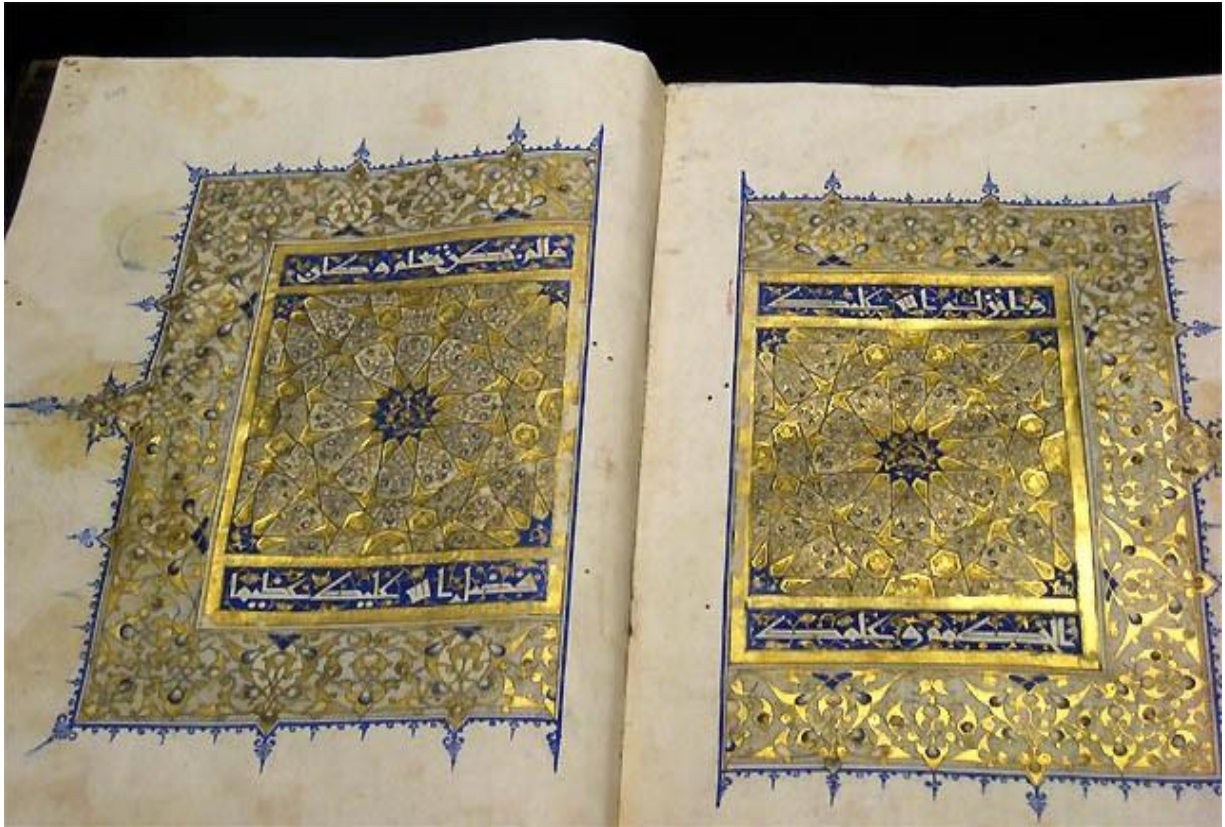 وانزل الله عليك
والحكمة وعلمك
مالم تكن تعلم وكان
فضل الله عليك عظيما